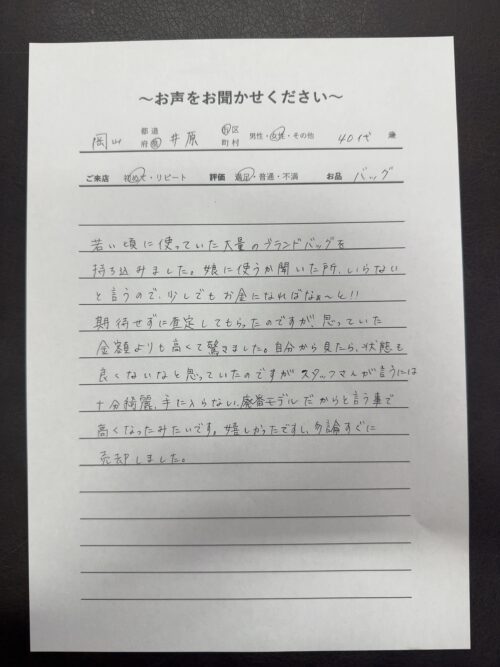 ～お声をお聞かせください～
岡山 都道府県 井原 市区町村 男性・女性・その他 40代 歳
ご来店 初めて・リピート 評価 満足・普通・不満 お品 バッグ
若い頃に使っていた大量のブランドバッグを
持ち込みました。娘に使うか聞いた所、いらない
と言うので、少しでもお金になればなぁ〜と!!
期待せずに査定してもらったのですが、思っていた
金額よりも高くて驚きました。自分から見たら、状態も
良くないなと思っていたのですがスタッフさんが言うには
十分綺麗、手に入らない、廃番モデルだからと言う事で
高くなったみたいです。嬉しかったですし、勿論すぐに
売却しました。